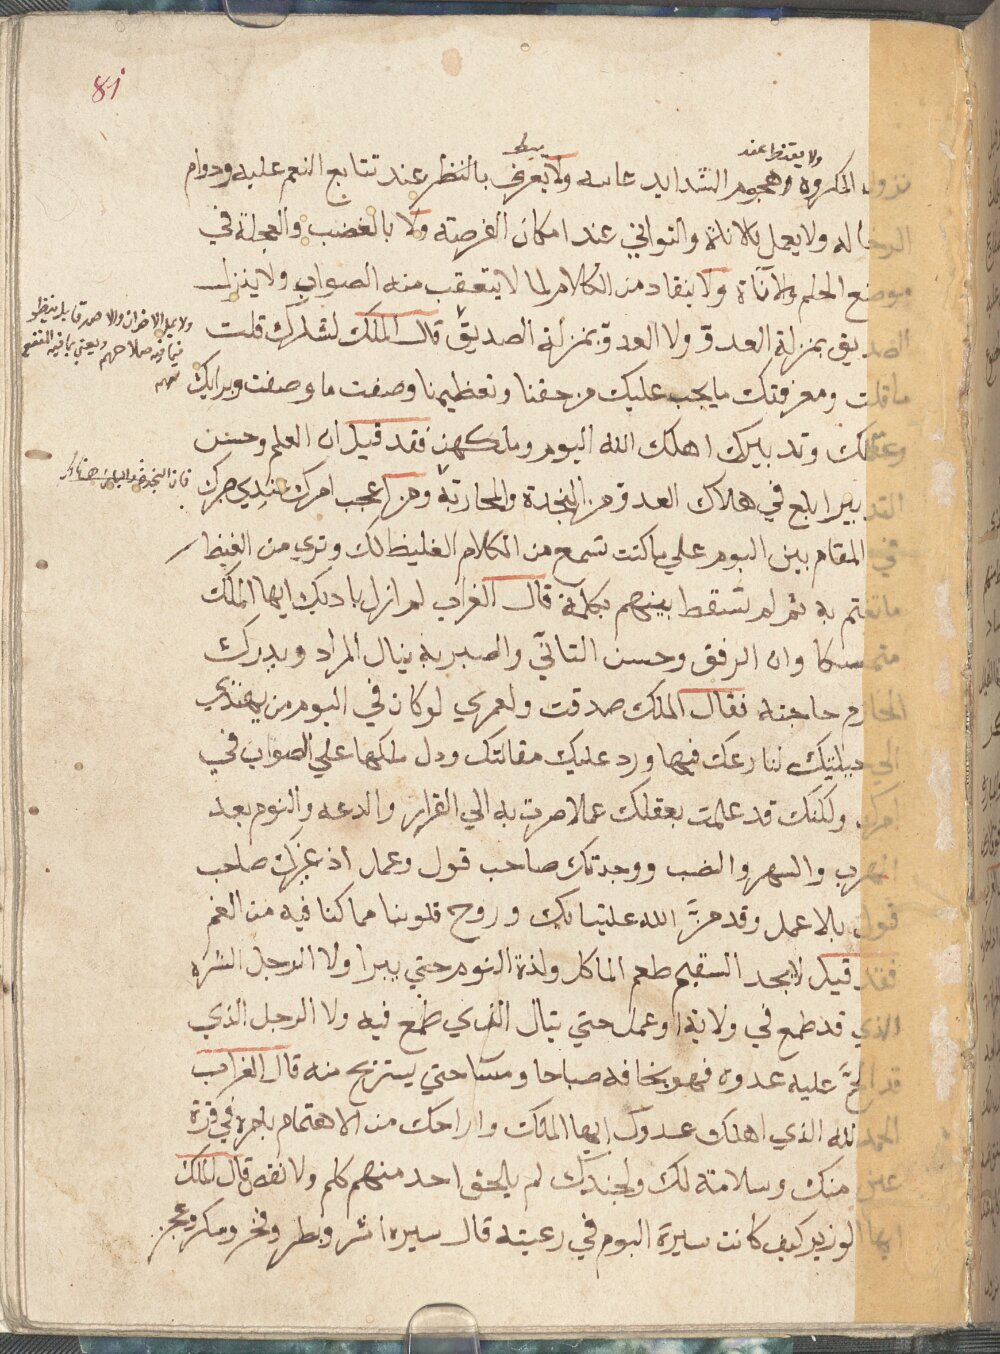 81
ولا يقنط عند
نزول المكروه وهجوم الشدايد عليه ولا يعرف بالنظر عند تتابع النعم عليه ودوام
الرخا له ولا يعمل بالاناة والتواني عند امكان الفرصة ولا بالغضب والعجلة في
موضع الحلم والاناة ولا ينقاد من الكلام لما لا يتعقب منه الصواب ولا ينزل
الصديق بمنزلة العدو ولا العدو بمنزلة الصديق قال الملك لشادرك قلت
ما قلت ومعرفتك ما يجب عليك من حقنا وتعظيمنا وصفت ما وصفت وبرايك
وعقلك وتدبيرك اهلك الله اليوم وملكهن فقد قيل ان العلم وحسن
التدبير ابلغ في هلاك العدو من النجدة والمحاربة ومن اعجب امرك عندي صبرك
في المقام بين البوم علي ما كنت تسمع من الكلام الغليظ لك وتري من الغيظ
ما تغتم به ثم لم تسقط بينهم بكلمة قال الغراب لم ازل بادبك ايها الملك
متمسكا وان الرفق وحسن التاني والصبر به ينال المراد ويدرك
الحازم حاجته فقال الملك صدقت ولعمري لو كان في البوم من يهتدي
الي حيلتك لنازعك فيها ورد عليك مقالتك ودل ملكها علي الصواب في
امرك ولكنك قد علمت بعقلك عملا صرت به الي القرار والدعه والنوم بعد
الهرب والسهر والنصب ووجدتك صاحب قول وعمل اذ غيرك صاحب
قول بلا عمل وقد من الله علينا بك وروح قلوبنا مما كنا فيه من الغم
فقد قيل لا يجد السقيم طعم الماكل ولذة النوم حتي يبرا ولا الرجل الشره
الذي قد طمع في ولاية او عمل حتي ينال الذي طمع فيه ولا الرجل الذي
قد الح عليه عدوه فهو يخافه صباحا ومسا حتي يستريح منه قال الغراب
الحمد لله الذي اهلك عدوك ايها الملك واراحك من الاهتمام بامره في قرة
عين منك وسلامة لك ولجندك لم يلحق احد منهم كلم ولا نقص قال الملك
ايها الوزير كيف كانت سيرة البوم في رعيته قال سيرة اشر وبطر وفخر ومكر وعجز
ولا يمل الاخوان والاصدقا بل ينظر
فيما فيه صلاحهم ويعتني بما فيه النفع
لهم